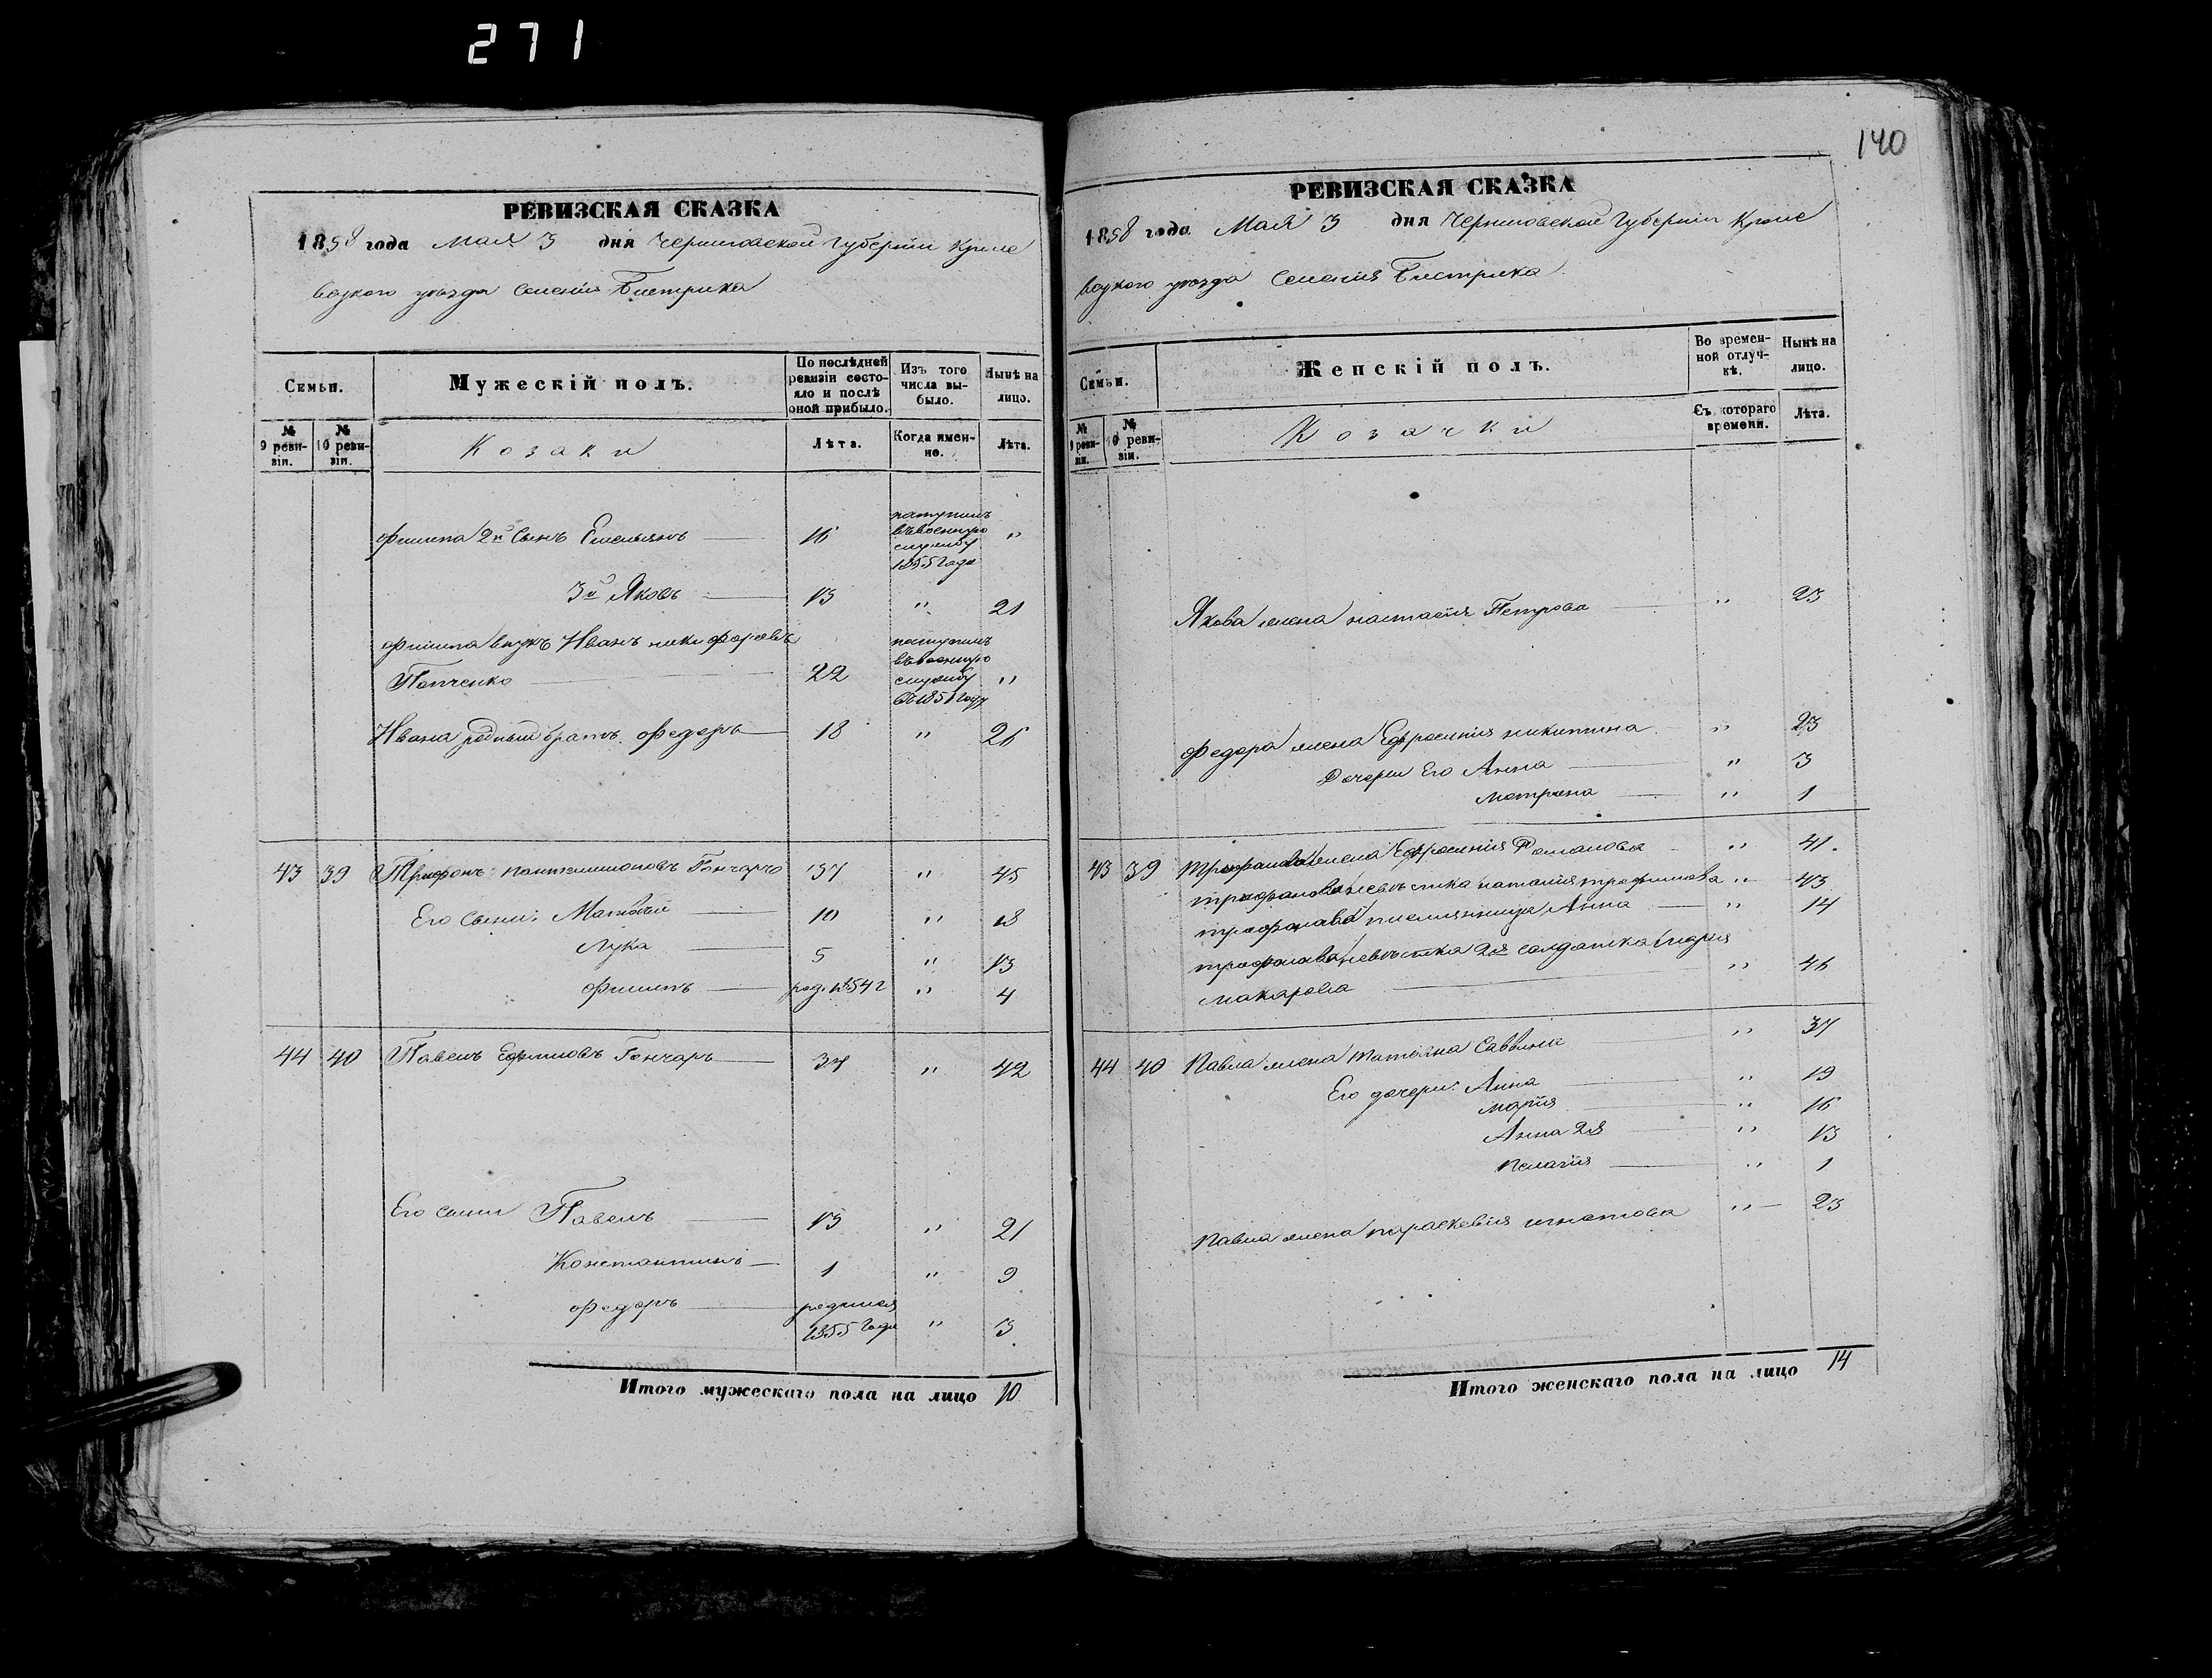 271
140
РЕВИЗСКАЯ СКАЗКА
1858 года Мая 3 дня Черниговской Губернiи Кроле
вецкого уезда Селенiя Бистрика
Семьи.
Мужескiй полъ.
По послѣдней ревизiи состояло и послѣ оной прибыло.
Изъ того числа выбыло.
Нынѣ на лицо.
№ 9 ревизiи.
№ 10 ревизiи.
Козаки
Лѣта.
Когда именно.
Лѣта.
Филипа 2й Сынъ Емельянъ 16 поступилъ въ военную службу 1855 года "
3й Яковъ 13 " 21
Филипа внукъ Иванъ никифоровъ
Попченко 22 поступилъ въ военную службу "
Ивана родный братъ Федоръ 18 " 26
43 39 Трифонъ пантелимоновъ Гончаръ 37 " 45
Его Сыни: Матвѣй 10 " 18
Лука 5 " 13
Филипъ род. 1854 г " 4
44 40 Павелъ Ефимовъ Гончаръ 34 " 42
Его сыни Павелъ 13 " 21
Константинъ 1 " 9
Федоръ родился 1855 Года " 3
Итого мужескаго пола на лицо 10
РЕВИЗСКАЯ СКАЗКА
1858 года Мая 3 дня Черниговской Губернiи Кроле
вецкого уезда Селенiя Бистрика
Семьи.
Женскiй полъ.
Во временной отлучкѣ.
Нынѣ на лицо.
№ 9 ревизiи.
№ 10 ревизiи.
Козачки
Съ котораго времени.
Лѣта.
Якова жена настасiя Петрова " 23
Федора жена Ефросинiя никитина " 23
Дочери Его Анна " 3
Матрена " 1
43 39 Трифонова жена Ефросинiя Романова " 41
трифонова невѣстка наталiя трофимова " 43
трифонова племянница Анна " 14
трифонова невѣстка 2я солдатка Марiя
макарова " 46
44 40 Павла жена татiяна Саввина " 37
Его дочери: Анна " 19
марiя " 16
Анна 2я " 13
пелагiя " 1
Павла жена параскевiя игнатова " 23
Итого женскаго пола на лицо 14